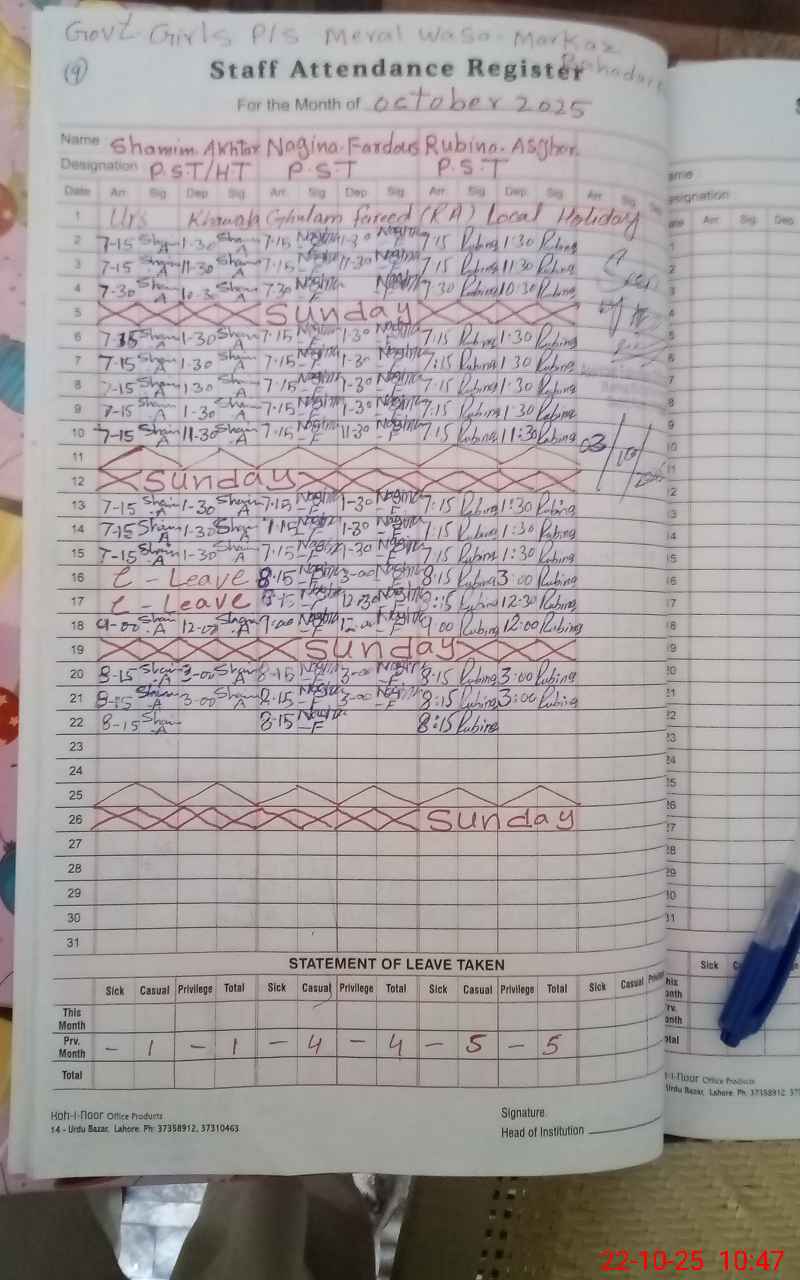 Govt Girls P/S Meral Wasa Markaz
(9) Staff Attendance Register
For the Month of October 2025
Name Shamim Akhtar Nagina Fardous Rubina Asghar
Designation P.S.T/HT P.S.T P.S.T
Date Arr. Sig. Dep. Sig. Arr. Sig. Dep. Sig. Arr. Sig. Dep. Sig. Arr. Sig. Dep.
1 Urs Khwaja Ghulam Fareed (RA) Local Holiday
2 7-15 Sham A 1-30 Sham A 7.15 Nagina F 1-30 Nagina F 7:15 Rubina 1:30 Rubina
3 7-15 Sham A 11-30 Sham A 7.15 Nagina F 11-30 Nagina F 7:15 Rubina 11:30 Rubina
4 7-30 Sham A 10-30 Sham A 7.30 Nagina F Nagina F 7:30 Rubina 10:30 Rubina
5 Sunday
6 7-15 Sham A 1-30 Sham A 7.15 Nagina F 1-30 Nagina F 7:15 Rubina 1:30 Rubina
7 7-15 Sham A 1-30 Sham A 7.15 Nagina F 1-30 Nagina F 7:15 Rubina 1:30 Rubina
8 7-15 Sham A 1-30 Sham A 7.15 Nagina F 1-30 Nagina F 7:15 Rubina 1:30 Rubina
9 7-15 Sham A 1-30 Sham A 7.15 Nagina F 1-30 Nagina F 7:15 Rubina 1:30 Rubina
10 7-15 Sham A 11-30 Sham A 7.15 Nagina F 11-30 Nagina F 7:15 Rubina 11:30 Rubina
11
12 Sunday
13 7-15 Sham A 1-30 Sham A 7.15 Nagina F 1-30 Nagina F 7:15 Rubina 1:30 Rubina
14 7-15 Sham A 1-30 Sham A 7.15 Nagina F 1-30 Nagina F 7:15 Rubina 1:30 Rubina
15 7-15 Sham A 1-30 Sham A 7.15 Nagina F 1-30 Nagina F 7:15 Rubina 1:30 Rubina
16 C - Leave 8.15 Nagina F 3-00 Nagina F 8:15 Rubina 3:00 Rubina
17 C - Leave 8.15 Nagina F 12-30 Nagina F 8:15 Rubina 12:30 Rubina
18 9-00 Sham A 12-00 Sham A 9:00 Nagina F 12-00 Nagina F 9:00 Rubina 12:00 Rubina
19 Sunday
20 8-15 Sham A 3-00 Sham A 8.15 Nagina F 3-00 Nagina F 8:15 Rubina 3:00 Rubina
21 8-15 Sham A 3-00 Sham A 8.15 Nagina F 3-00 Nagina F 8:15 Rubina 3:00 Rubina
22 8-15 Sham A 8.15 Nagina F 8:15 Rubina
23
24
25
26 Sunday
27
28
29
30
31
STATEMENT OF LEAVE TAKEN
Sick Casual Privilege Total Sick Casual Privilege Total Sick Casual Privilege Total Sick Casual
This Month
Prv. Month - 1 - 1 - 4 - 4 - 5 - 5
Total
Koh-I-Noor Office Products
14 - Urdu Bazar, Lahore. Ph: 37358912, 37310463
Signature.
Head of Institution
22-10-25 10:47